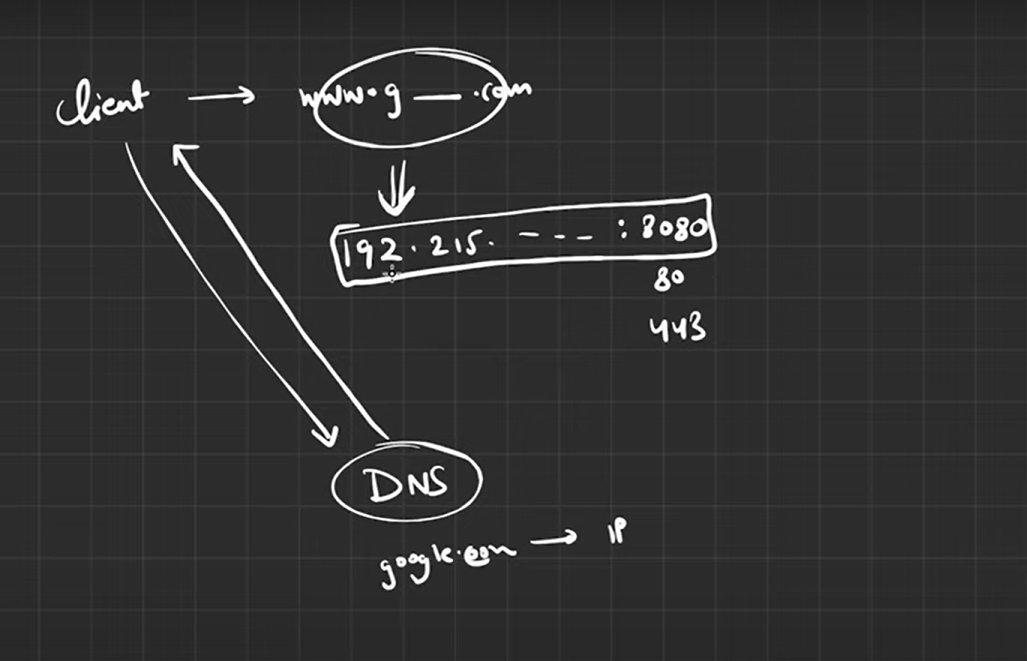 Client → www.g — .com
192.215. - - - : 8080
80
443
DNS
google.com → IP